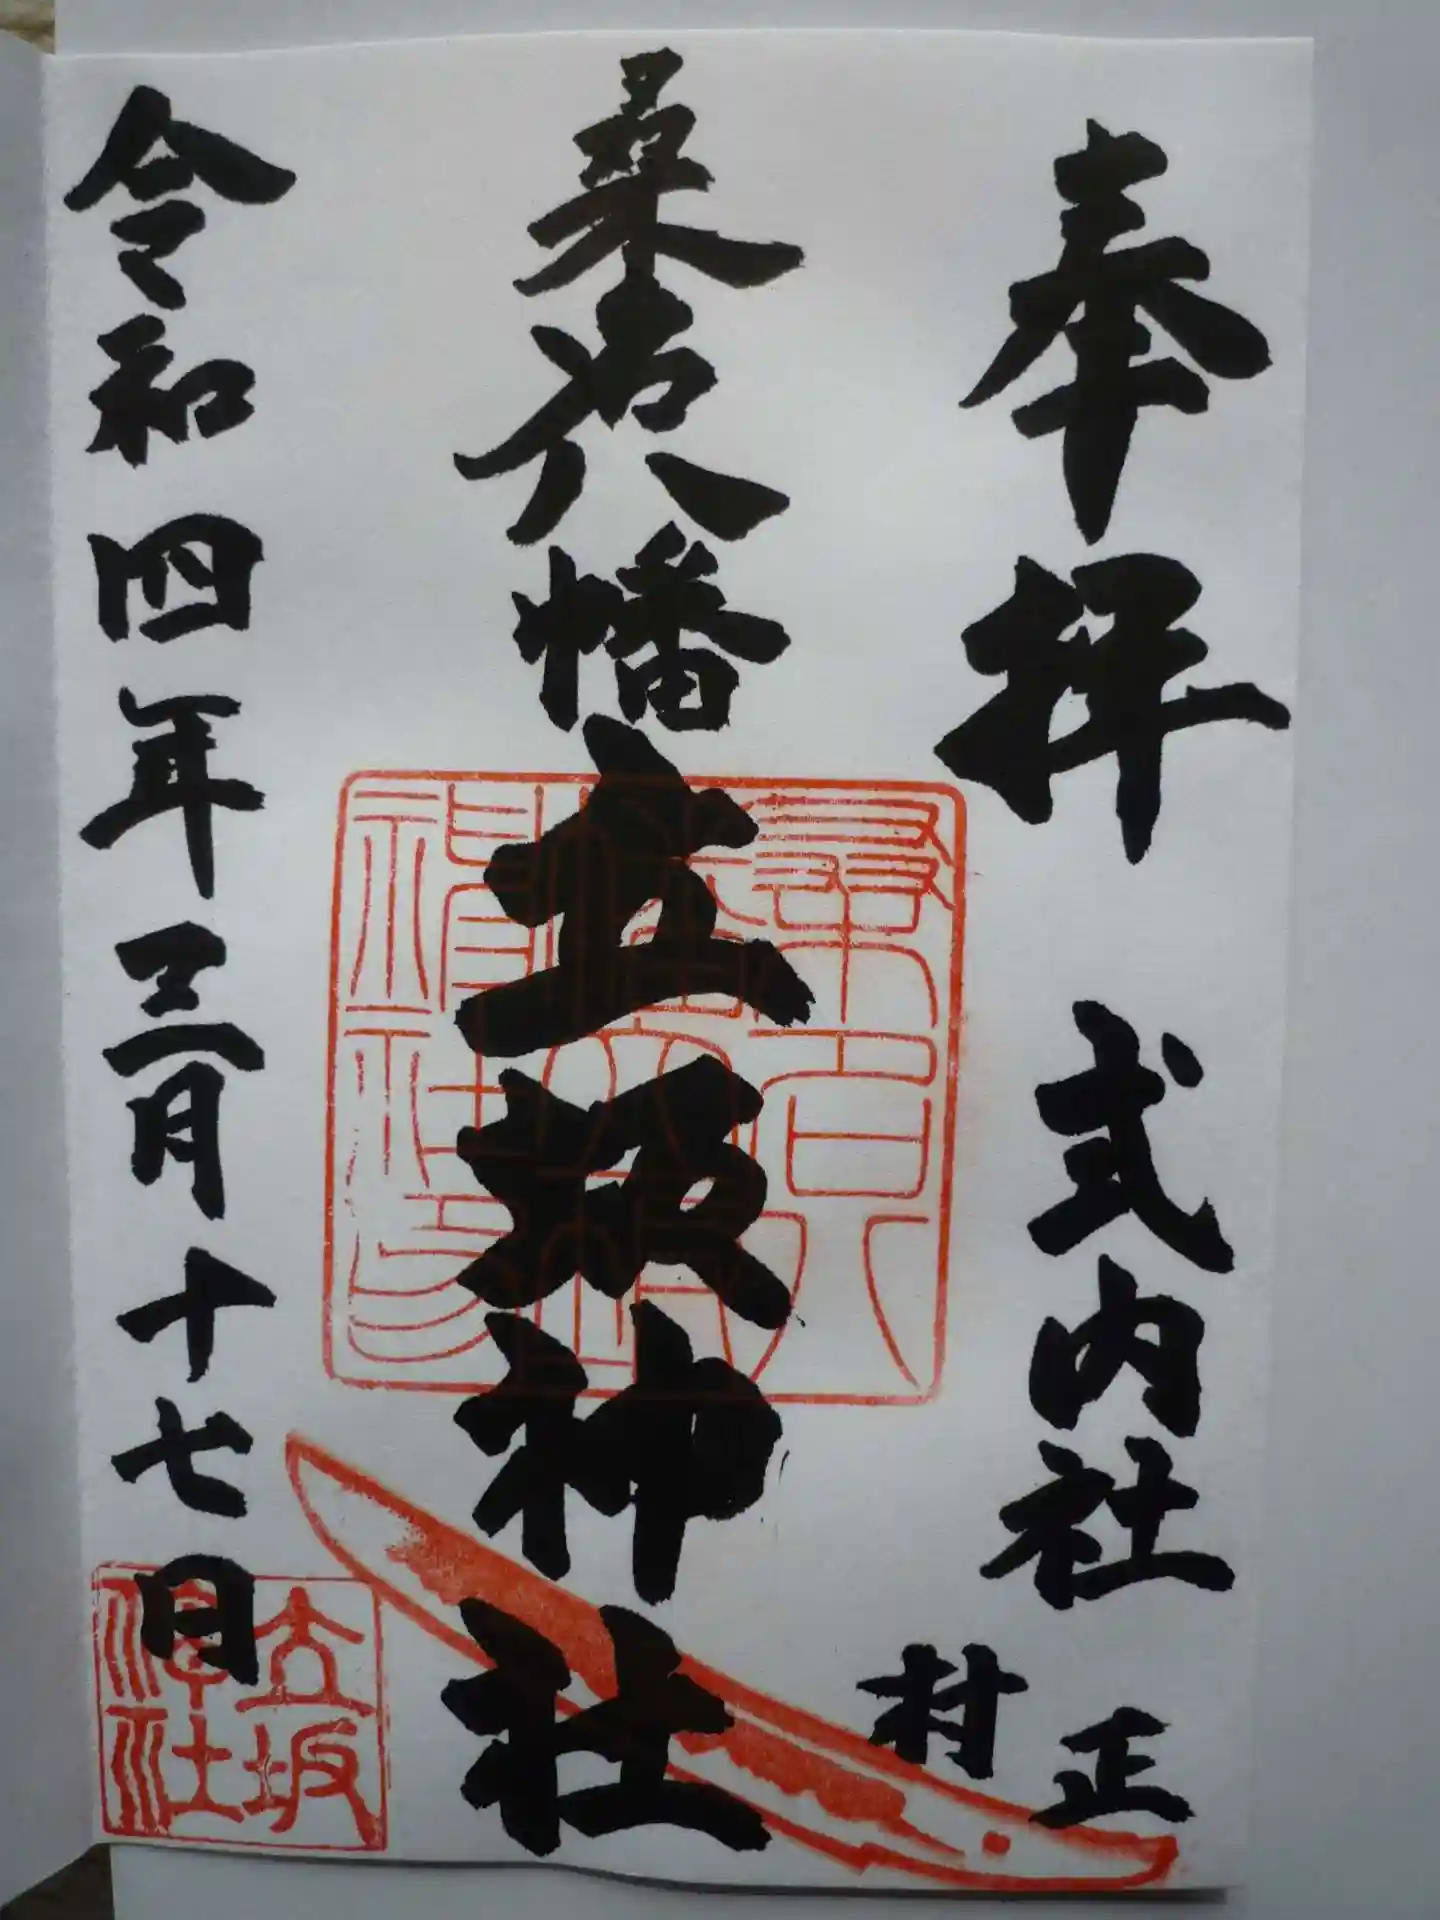 奉拝 式内社
村正
桑名八幡
立坂神社
令和四年三月十七日
立坂
神社